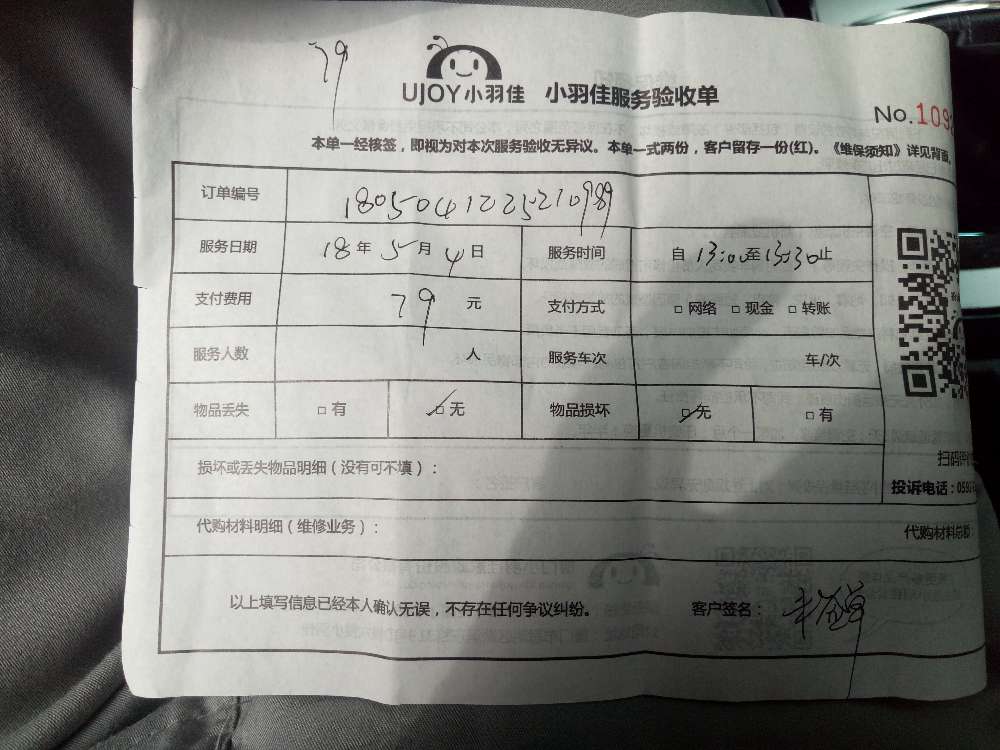 79
UJOY小羽佳 小羽佳服务验收单
No.109
本单一经核签，即视为对本次服务验收无异议。本单一式两份，客户留存一份(红)。《维保须知》详见背面。
订单编号 1805041225210989
服务日期 18年5月4日 服务时间 自13:00至13:30止
支付费用 79元 支付方式 □网络 □现金 □转账
服务人数 人 服务车次 车/次
物品丢失 □有 ☑无 物品损坏 ☑无 □有
损坏或丢失物品明细（没有可不填）：
扫码评
投诉电话：059
代购材料明细（维修业务）： 代购材料总额：
以上填写信息已经本人确认无误，不存在任何争议纠纷。 客户签名：